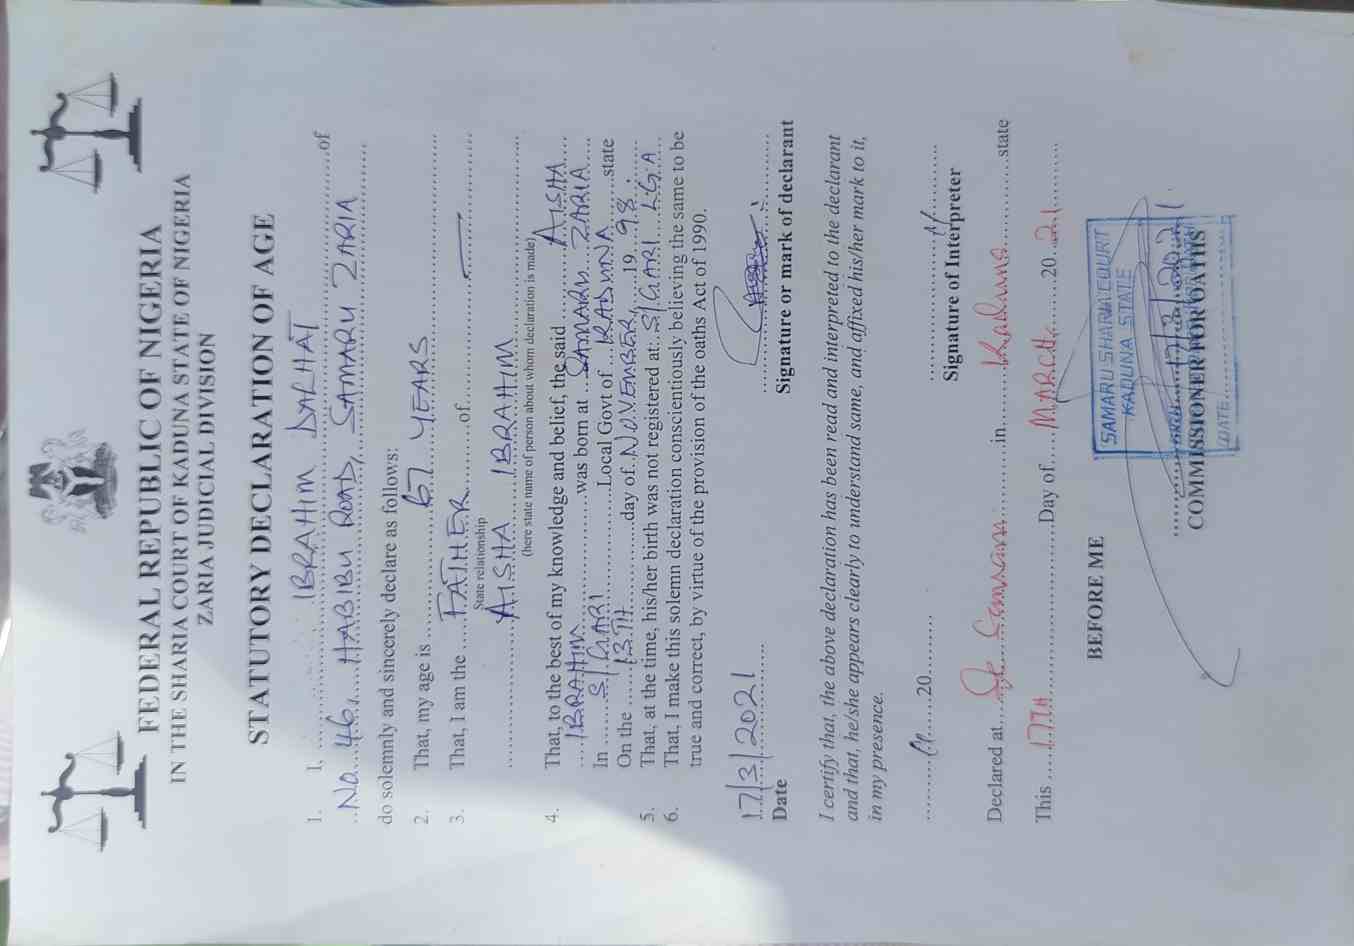 FEDERAL REPUBLIC OF NIGERIA
IN THE SHARIA COURT OF KADUNA STATE OF NIGERIA
ZARIA JUDICIAL DIVISION
STATUTORY DECLARATION OF AGE
1. I, IBRAHIM DALHAT of
No. 46, HABIBU ROAD, SAMARU ZARIA
do solemnly and sincerely declare as follows:
2. That, my age is 67 YEARS
3. That, I am the FATHER of —
State relationship
AISHA IBRAHIM
(here state name of person about whom declaration is made)
4. That, to the best of my knowledge and belief, the said AISHA
IBRAHIM was born at SAMARU ZARIA
In S/GARI Local Govt of KADUNA state
On the 13TH day of NOVEMBER, 19 98.
5. That, at the time, his/her birth was not registered at: S/GARI L.G.A
6. That, I make this solemn declaration conscientiously believing the same to be
true and correct, by virtue of the provision of the oaths Act of 1990.
17/3/2021
Date
Signature or mark of declarant
I certify that, the above declaration has been read and interpreted to the declarant
and that, he/she appears clearly to understand same, and affixed his/her mark to it,
in my presence.
20
Signature of Interpreter
Declared at Sc Samaru in Kaduna state
This 17TH Day of MARCH 20 21
BEFORE ME
SAMARU SHARIA COURT
KADUNA STATE
17/3/2021
COMMISSIONER FOR OATHS
DATE